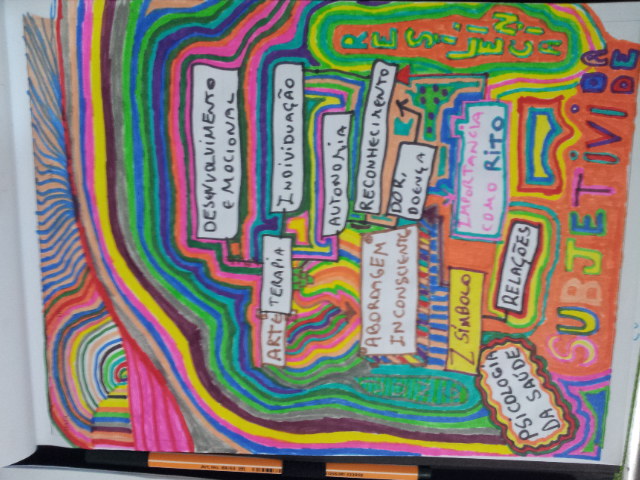 DESENVOLVIMENTO
EMOCIONAL
ARTE TERAPIA
INDIVIDUAÇÃO
AUTONOMIA
ABORDAGEM
INCONSCIENTE
RECONHECIMENTO
DOR,
DOENÇA
SÍMBOLO
IMPORTANCIA
COMO RITO
PSICOLOGIA
DA SAÚDE
RELAÇÕES
SUBJETIVIDADE